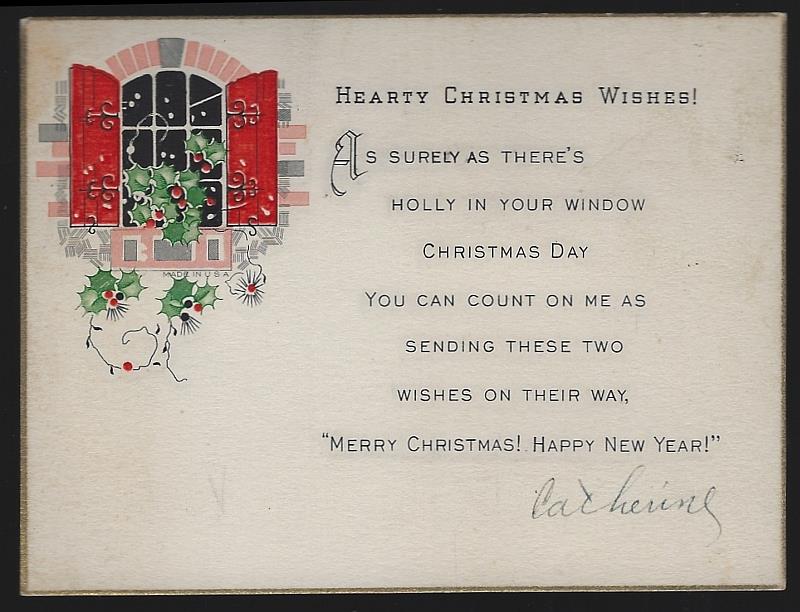 HEARTY CHRISTMAS WISHES!
AS SURELY AS THERE'S
HOLLY IN YOUR WINDOW
CHRISTMAS DAY
YOU CAN COUNT ON ME AS
SENDING THESE TWO
WISHES ON THEIR WAY,
"MERRY CHRISTMAS! HAPPY NEW YEAR!"
Catherine
MADE IN U S A